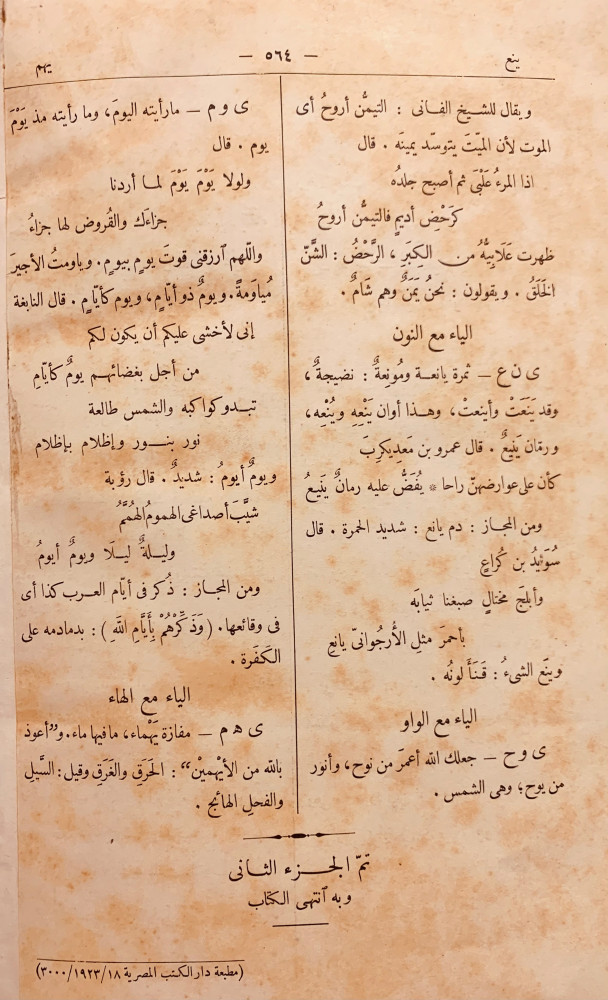 ينع
— ٥٦٤ —
يهم
ويقال للشيخ الفانى : التيمنُّ أروحُ أى
الموت لأن الميّتَ يتوسّد يمينَه . قال
اذا المرءُ عَلْبَى ثم أصبح جلدُه
كَرَحْضِ أديمٍ فالتيمنُّ أروحُ
ظهرت عَلَابِيُّهُ من الكِبَرِ ، الرَّحْضُ : الشَّنّ
الخَلَقُ . ويقولون : نحنُ يَمَنٌ وهم شَامٌ .
الياء مع النون
ى ن ع — ثمرة يانعة ومُونِعةٌ : نضيجةٌ ،
وقد يَنَعَتْ وأينعتْ ، وهـذا أوان يَنْعِه ويُنْعِه ،
ورمّان يَنِيعٌ . قال عمرو بن مَعديكرِبَ
كأن على عوارضهنّ راحا * يُفَضُّ عليه رمانٌ يَنِيعُ
ومن المجاز : دم يانع : شديد الحمرة . قال
سُوَيْدُ بن كُراعٍ
وأبلجَ مختالٍ صبغنا ثيابَه
بأحمرَ مثلِ الأُرجوانىّ يانعِ
وينَع الشىءُ : قَنَأَ لونُه .
الياء مع الواو
ى و ح — جعلك الله أعمرَ من نوح ، وأنور
من يوح ؛ وهى الشمس .
ى و م — مارأيته اليومَ ، وما رأيته مذ يَوْمَ
يوم . قال
ولولا يَوْمَ يَوْمَ لما أردنا
جزاءَك والقُروض لها جزاءُ
واللّهم ٱرزقنى قوتَ يومٍ بيومٍ . وياومتُ الأجيرَ
مُياوَمةً . ويومٌ ذو أيّامٍ ، ويوم كأيّامٍ . قال النابغة
إنى لأخشى عليكم أن يكون لكم
من أجل بغضائهـم يومٌ كأيّامِ
تبـدو كواكبه والشمس طالعة
نور بنـور وإظلام بإظلام
ويومٌ أيومُ : شديدٌ . قال رؤبة
شيَّبَ أصداغى الهمومُ الهُمَّمُ
وليـلةٌ ليـلَا ويومٌ أيومُ
ومن المجاز : ذُكر فى أيّام العـرب كذا أى
فى وقائعها . (وَذَكِّرْهُمْ بِأَيَّامِ اللّهِ) : بدمادمه على
الكَفَرة .
الياء مع الهاء
ى ه م — مفازة يَهْماء ، ما فيها ماء . و”أعوذ
باللّه من الأَيْهمينْ“ : الحَرَقِ والغَرَقِ وقيل : السَّيلِ
والفحلِ الهائجِ .
تمّ الجـزء الثانى
وبه ٱنتهى الكتاب
(مطبعة دار الكتب المصرية ١٨/١٩٢٣/٣٠٠٠)